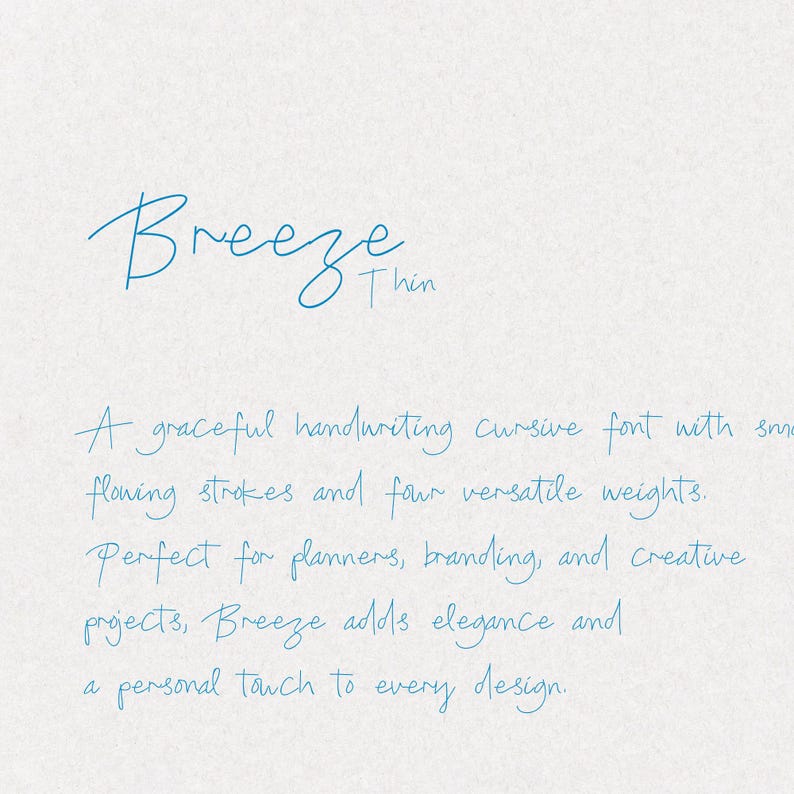 Breeze
Thin
A graceful handwriting cursive font with
flowing strokes and four versatile weights.
Perfect for planners, branding, and creative
projects, Breeze adds elegance and
a personal touch to every design.